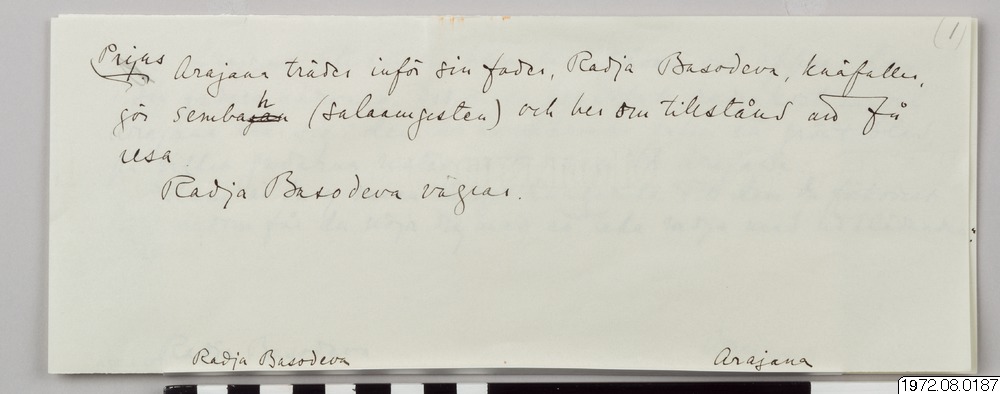 (1)
Prijus
Arajana träder inför sin fader, Radja Basodeva, knäfaller,
gör sembah (salaamgesten) och ber om tillstånd att få
resa.
Radja Basodeva vägrar.
Radja Basodeva Arajana
1972.08.0187